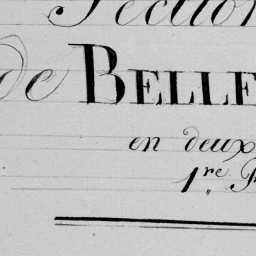 Section
de BELLE
en deux
1.re P